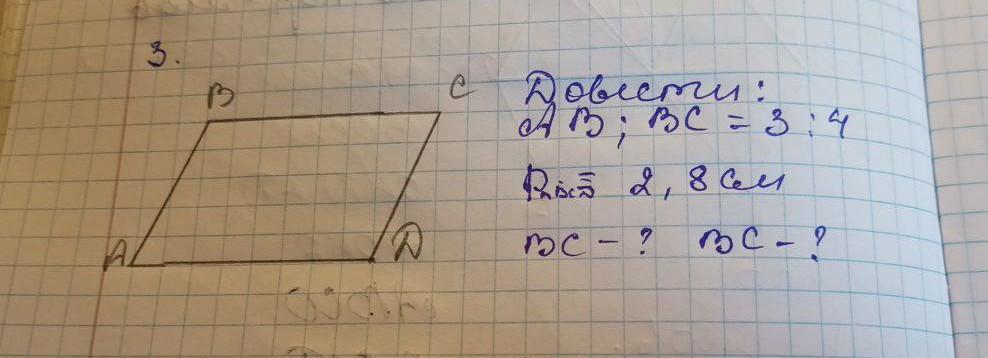 3.
B
C
A
D
Довести:
AB ; BC = 3 : 4
2,8 см
BC - ? BC - ?